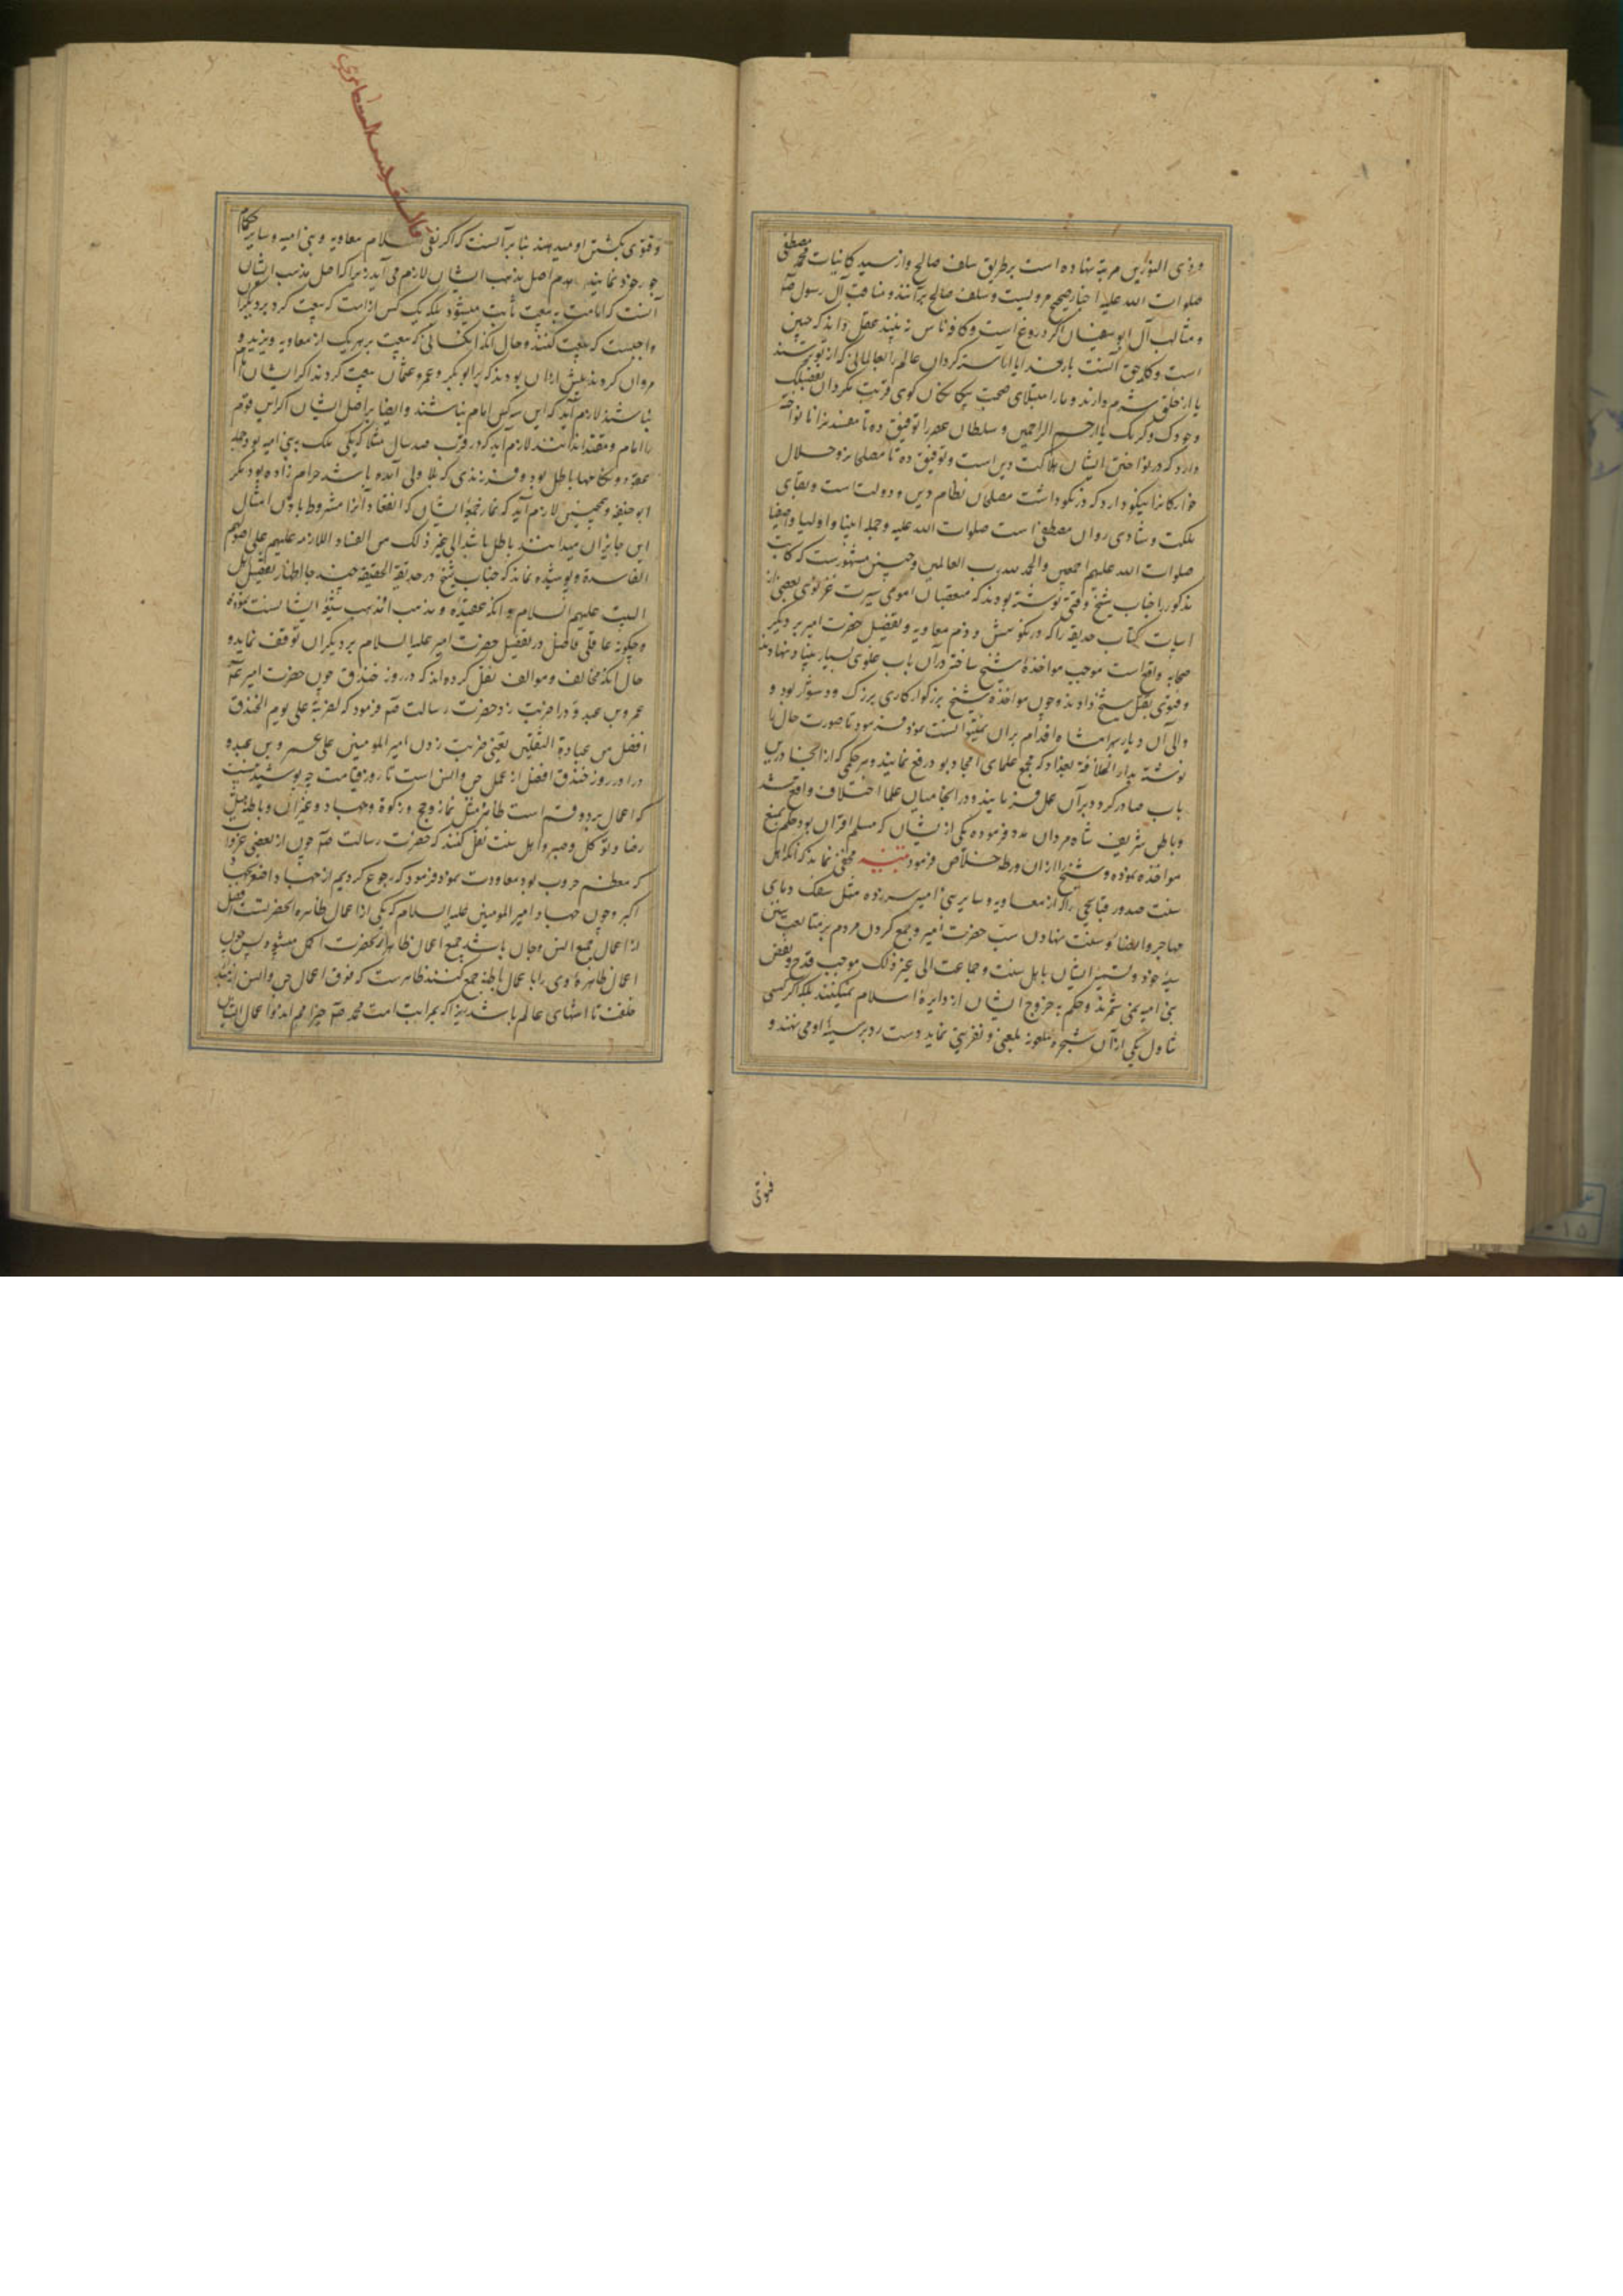 و ذی النورین مرتبه نهاده است بر طریق سلف صالح و از سید کاینات محمد مصطفی
صلوات الله علیه اخبار صحیح مرویست و سلف صالح برآنند و مناقب آل رسول صلعم
و مثالب آل ابوسفیان اگر دروغ است و کافه ناس نه پسندد عقل داند که چنین
است و کار حق آنست بار خدایا آراسته گردان عالم را بعالمانی که از تو ترسند
یا از خلق شرم دارند و ما را مبتلای صحبت بیگانگان کوی قربت مگردان بفضلک
وجودک و کرمک یا ارحم الراحمین و سلطان عصر را توفیق ده تا مفسدانرا نانواخته
دارد که در نواختن ایشان هلاکت دین است و توفیق ده تا مصلحانرا و حلال
خوارگانرا نیکو دارد که در نکوداشت مصلحان نظام دین و دولت است و بقای
ملکت و شادی روان مصطفی است صلوات الله علیه و جمله انبیا و اولیا و اصفیا
صلوات الله علیهم اجمعین والحمد لله رب العالمین و چنین مشهور است که کتاب
مذکور را جناب شیخ وقتی نوشته بودند که متعصبان اموی سیرت غزنوی بعضی از
ابیات کتاب حدیقه را که در نکوهش و ذم معاویه و تفضیل حضرت امیر بر دیگر
صحابه واقع است موجب مواخذه شیخ ساخته در آن باب غلوی بسیار بنیاد نهادند
و فتوی بقتل شیخ دادند و چون مواخذه شیخ بزرگوار کاری بزرک و دشوار بود و
والی آن دیار بهرامشاه اقدام بران نمیتوانست نمود فرمود تا صورت حال را
نوشته بدار الخلافة بغداد که مجمع علمای امجاد بود رفع نمایند و هر حکمی که از آنجا درین
باب صادر گردد بر آن عمل فرمایند و در آنجا میان علما اختلاف واقع شد
و باطن شریف شاه مردان مدد فرموده یکی از ایشان که مسلم اقران بود حکم بمنع
مواخذه نموده و شیخ را از آن ورطه خلاص فرمود تنبیه مخفی نماند که آنکه اهل
سنت صدور قبایحی را که از معاویه و سایر بنی امیه سر زده مثل سفک دمای
مهاجر و انصار و سنت نهادن سب حضرت امیر و جمع کردن مردم بر متابعت سنن
سیئه خود و تسمیه ایشان باهل سنت و جماعت الی غیر ذلک موجب قدح و بغض
بنی امیه نمی شمرند و حکم به خروج ایشان از دایرۀ اسلام نمیکنند بلکه اگر کسی
تناول یکی از آن شجره ملعونه بلعنی و نفرینی نماید دست رد بر سینۀ او می نهند و
فتوی
و فتوی بکشتن او میدهند بنا بر آنست که اگر نفی اسلام معاویه و بنی امیه و سایر حکام
جور خود نمایند هدم اصل مذهب ایشان لازم می آید زیرا که اصل مذهب ایشان
آنست که امامت به بیعت ثابت میشود بلکه یک کس از امت که بیعت کرد بر دیگران
واجبست که بیعت کنند و حال آنکه آنکسانی که بیعت بر هر یک از معاویه و یزید و
مروان کردند بیش از آن بودند که بر ابوبکر و عمر و عثمان بیعت کردند اگر ایشان امام
نباشند لازم آید که این سه کس امام نباشند و ایضا بر اصل ایشان اگر این قوم
را امام و مقتدا ندانند لازم آید که در قرب صد سال مثلا که یکی ملک بنی امیه بود جمله
عقود و نکاحها باطل بود و فرزندی که بلا ولی آمده باشد حرام زاده بود مگر
ابوحنیفه و همچنین لازم آید که نماز جمعۀ ایشان که انعقاد آنرا مشروط باذن امثال
این جایران میدانند باطل باشد الی غیر ذلک من الفساد اللازمه علیهم علی اصولهم
الفاسدة و پوشیده نماند که جناب شیخ در حدیقة الحقیقه چند جا اظهار تفضیل اهل
البیت علیهم السلام و آنکه عقیده و مذهب او مذهب شیعۀ ایشانست نموده
و چگونه عاقلی فاضل در تفضیل حضرت امیر علیه السلام بر دیگران توقف نماید و
حال آنکه مخالف و موالف نقل کرده اند که در روز خندق چون حضرت امیر عم
عمرو بن عبدود را ضربت زد حضرت رسالت صلعم فرمود که لضربة علی یوم الخندق
افضل من عبادة الثقلین یعنی ضربت زدن امیر المومنین علی عمرو بن عبدود
را در روز خندق افضل از عمل جن و انس است تا روز قیامت چه پوشیده نیست
که اعمال بر دو قسم است ظاهر مثل نماز و حج و زکوة و جهاد و غیر آن و باطن مثل
رضا و توکل و صبر و اهل سنت نقل کنند که حضرت رسالت صلعم چون از بعضی غزوات
که معظم حروب بود معاودت نمود فرمود که رجوع کردیم از جهاد اصغر بجهاد
اکبر و چون جهاد امیر المومنین علیه السلام که یکی از اعمال ظاهره آنحضرتست افضل
از اعمال جمیع انس و جان باشد جمیع اعمال ظاهر آنحضرت اکمل میشود پس چون
اعمال ظاهرۀ وی را با اعمال باطنه جمع کنند ظاهرست که فوق اعمال جن و انس از ابتدا
خلقت تا انتهای عالم باشد